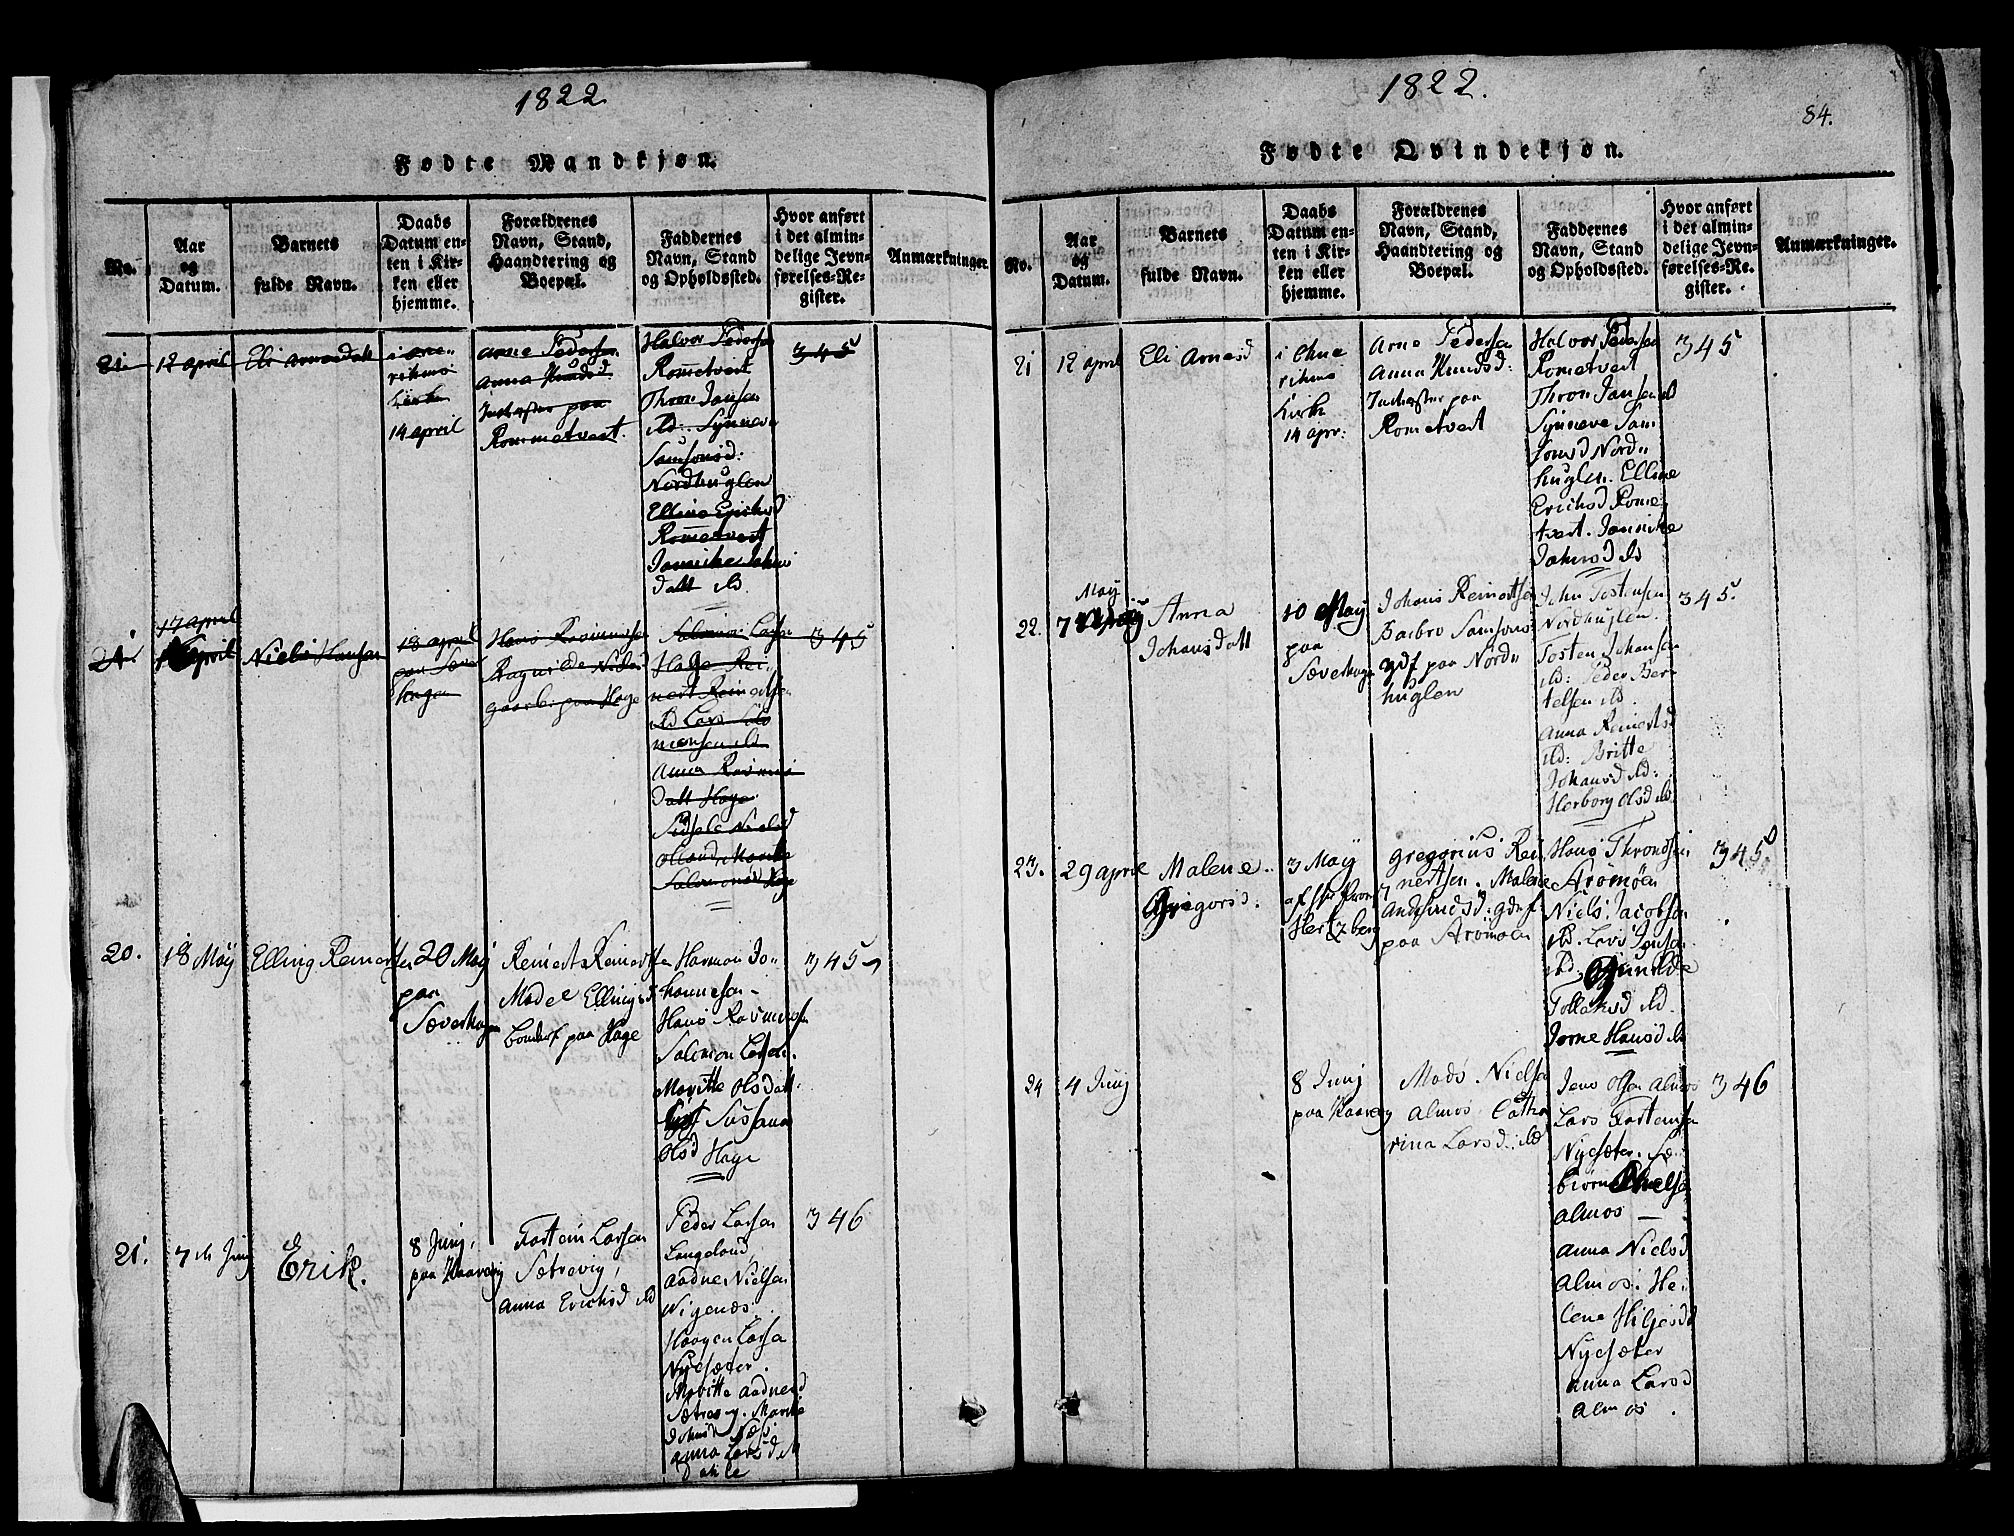 1822
Fødte Mandkjøn.
No.
Aar
og
Datum.
Barnets
fulde Navn.
Daabs
Datum en-
ten i Kir-
ken eller
hjemme.
Forældrenes
Navn, Stand,
Haandtering og
Boepæl.
Faddernes
Navn, Stand
og Opholdssted.
Hvor anført
i det almin-
delige Jevn-
førelses-Re-
gister.
Anmærkninger.
21.
12 april
Eli Arnesdatt
kirke
14 april
Arne Pedersen
Anna Knudsd
paa
Rometvert.
Halvor Pedersen
Rometvert
Thron Jansen
ibd: Synneve
Samsonsd:
Nordhuglen
Elline Erichsd
Rometvert
Jannike Johns
datt ibd
345
17 april
april
Niels Hansen
18 april
paa Sæver
hagen
Hans Rasmussen
Ragnilde Nielsd
paa Hage
Salomon Larsen
Hage Rei-
nert Reinertsen
ibd Lars Salo
monsen ibd
Anna Rasmus
datt Hage
Sidsele Nielsd
Marite
Salomonsd Hage
345
20.
18 Maij
Elling Reinertsen
20 Maij
paa
Sæverhagen
Reinert Reinertsen
Madel Ellingsd
bondef paa Hage
Harmon Jo-
hannesen -
Hans Rasmussen
Salomon Larsen.
Maritte Olsdatt.
Susanna
Olsd Hage
345
21.
7de Junij
Erik.
8 Junij,
paa Waavog
Torstein Larsen
Sætrevig,
Anna Erichsd ibd
Peder Larsen
Langeland,
Aadne Nielsen
Wigenæs.
Haagen Larsen
Nÿesæter.
Maritte Aadnesd
Sætrevig. Marite
Johnsd Næss
Anna Larsd
346
1822.
84.
Fødte Qvindekjøn.
No.
Aar
og
Datum.
Barnets
fulde Navn.
Daabs
Datum en-
ten i Kir-
ken eller
hjemme.
Forældrenes
Navn, Stand,
Haandtering og
Boepæl.
Faddernes
Navn, Stand
og Opholdssted.
Hvor anført
i det almin-
delige Jevn-
førelses-Re-
gister.
Anmærkninger.
21
12 april
Eli Arnesd
Kirke
14 apr:
Arne Pedersen
Anna Knudsd:
paa
Rometvert
Halvor Pedersen
Rometvert
Thron Jansen ibd
Synneve Sam
sonsd Nord
huglen. Elline
Erichsd Rome
tvert. Jannike
Johnsd ibd
345
22.
May
7
Anna
Johansdatt
10 Maij
paa
Sæverhagen
Johans Reinertsen
Barbro Samsons
gdf paa Nord
huglen
John Tostensen
Nordhuglen.
Tosten Johansen
ibd: Peder Ber
telsen ibd.
Anna Reinertsd
ibd: Britte
Johansd ibd:
Herborg Olsd ibd.
345.
23.
29 april
Malene
Gregorsd.
3 Maij
af Hr Provst
Hertzberg
Gregorius Rei
nertsen. Malene
gdnf:
paa Aromøen
Hans Throndsen
Aromøen
Niels Jacobsen
ibd. Lars
ibd. Gunilde
Tollaksd ibd.
Jorne Hansd ibd
345.
24
4 Junij
8 Junij
paa Waavog
Mads Nielsen
Almos. Catha
rina Larsd. ibd
Jens Olsen Almos
Lars Torstensen
Nÿesæter. Sæ
biorn
Almos —
Anna Nielsd
Almos. He-
lene
Nÿesæter
Anna Larsd
Almos.
346